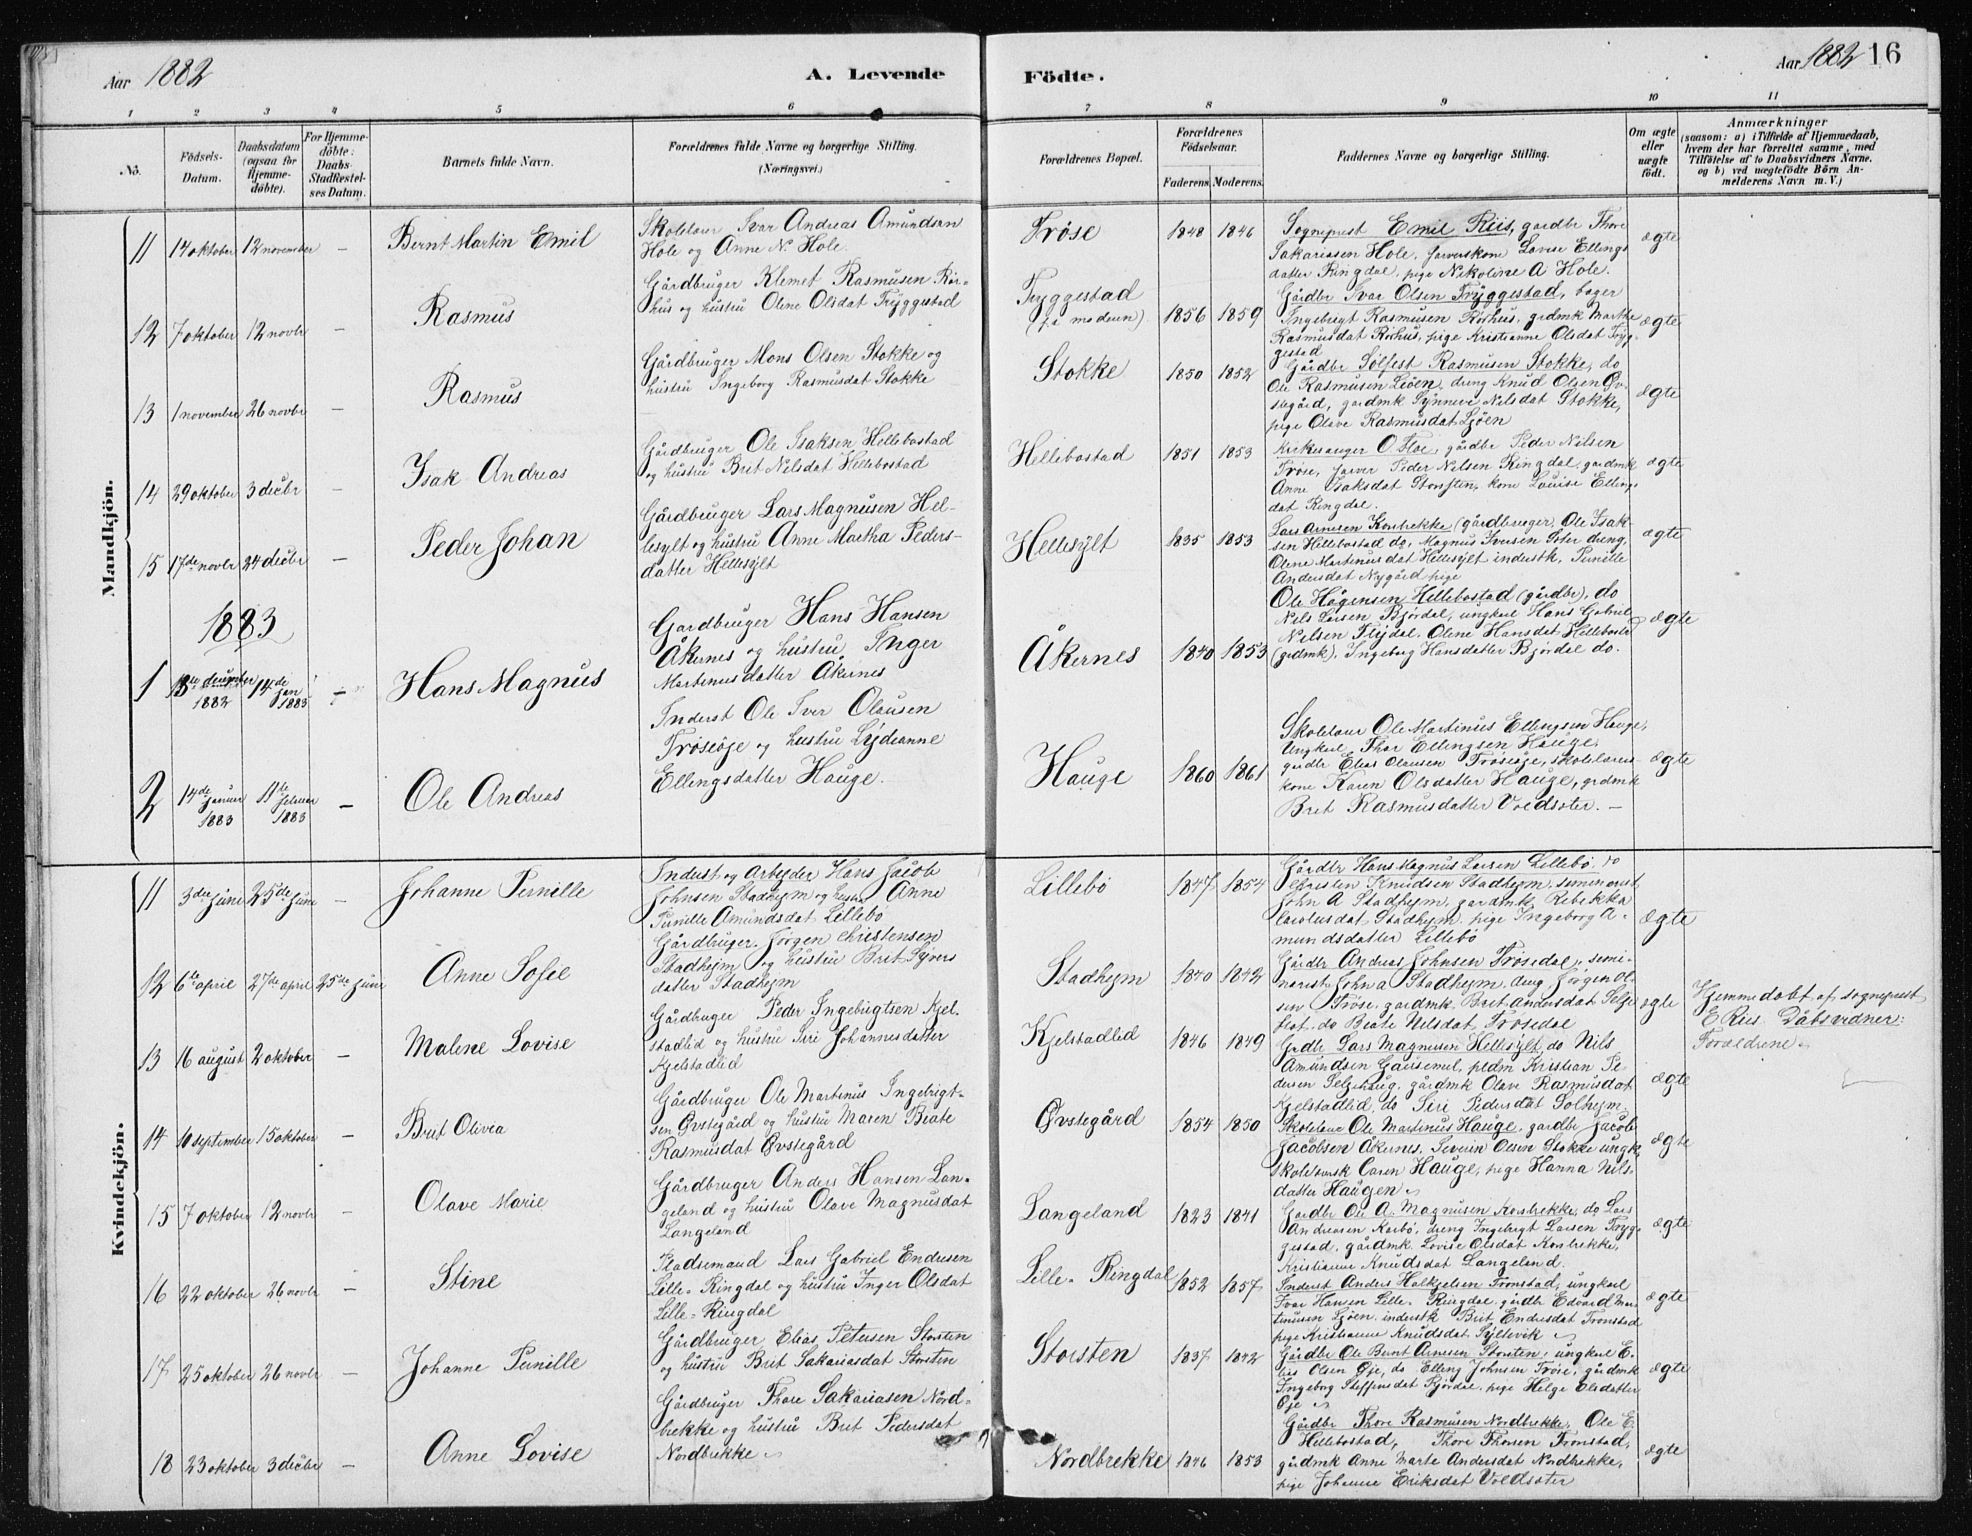 Aar 1882
A. Levende
Födte.
Aar 1882 16
1 2 3 4 5 6 7 8 9 10 11
No.
Födsels-
Datum.
Daabsdatum
(ogsaa for
Hjemme-
döbte).
For Hjemme-
döbte:
Daabs-
Stadfæstel-
ses Datum.
Barnets fulde Navn.
Forældrenes fulde Navne og borgerlige Stilling.
(Næringsvei.)
Forældrenes Bopæl.
Forældrenes
Födselsaar.
Faderens. Moderens.
Faddernes Navne og borgerlige Stilling.
Om ægte
eller
uægte
födt.
Anmærkninger
(saasom: a) i Tilfælde af Hjemmedaab,
hvem der har forrettet samme, med
Tilföielse af to Daabsvidners Navne.
og b) ved uægtefödte Börn An-
melderens Navn m. V.)
Mandkjön.
11 14 oktober 12 november - Bernt Martin Emil
Skolelærer Ivar Andreas Amundsen
Hole og Anne N Hole.
Trøse 1848 1846
Sognepræst Emil Riis, gardbr Thore
Sakariassen Hole, farverskone Lovise Ellings
datter Ringdal, pige Nikoline A Hole.
ægte
12 7 oktober 12 novbr - Rasmus
Gårdbruger Klemet Rasmusen Rør-
hus og hustru Oline Olsdat Tryggestad
Tryggestad
(på modern) 1856 1859
Gårdbr Ivar Olsen Tryggestad, bager
Ingebrigt Rasmusen Rørhus, grdmk Marthe
Rasmusdat Rørhus, pige Kristianne Olsdat Tryg-
gestad
ægte
13 1 november 26 novbr - Rasmus
Gårdbruger Mons Olsen Stokke og
hustru Ingeborg Rasmusdat Stokke
Stokke 1850 1852
Gårdbr Sølfest Rasmusen Stokke, do
Ole Rasmusen Ljøen, dreng Knud Olsen Øv-
stegård, gardmk Synneve Nilsdat Stokke,
pige Olave Rasmusdat Ljøen
ægte
14 29 oktober 3 decbr - Isak Andreas
Gårdbruger Ole Isaksen Hellebostad
og hustru Brit Nilsdat Hellebostad
Hellebostad 1851 1853
Kirkesanger O Floe, gårdbr Peder Nilsen
Trøse, farver Peder Nilsen Ringdal, gardmk
Anne Isaksdat Storsten, kone Louise Ellings
dat Ringdal.
ægte
15 17de novbr 24 decbr - Peder Johan
Gårdbruger Lars Magnusen Hel-
lesylt og hustru Anne Martha Peders-
datter Hellesylt
Hellesylt 1835 1853
Lars Arnesen Korsbrekke (gårdbruger), Ole Isak-
sen Hellebostad do, Magnus Iversen Sæter dreng,
Oline Martinusdat Hellesylt inderstk, Pernille
Andersdat Nygård pige
ægte
1883
1 13de december 1882 14de jan 1883 - Hans Magnus
Gardbruger Hans Hansen
Åkernes og hustru Inger
Martinusdatter Åkernes
Åkernes 1840 1853
Ole Hågensen Hellebostad (gårdbr), do
Nils Larsen Bjørdal, ungkarl Hans Gabriel
Nilsen Flydal, Oline Hansdat Hellebostad
(grdmk), Ingeborg Hansdatter Bjørdal do.
ægte
2 14de januar 1883 11te februar 1883 - Ole Andreas
Inderst Ole Iver Olausen
Trøseøje og hustru Lydianne
Ellingsdatter Hauge.
Hauge 1860 1861
Skolelærer Ole Martinus Ellingsen Hauge,
Ungkarl Thor Ellingsen Hauge,
grdbr Elias Olausen Trøseøje, skolelærer-
kone Karen Olsdatter Hauge, grdmk
Brit Rasmusdatter Voldsæter. -
ægte
Kvindekjön.
11 3die juni 25de juni - Johanne Pernille
Inderst og Arbejder Hans Jacob
Johnsen Stadhejm og hustru Anne
Pernille Amundsdat Lillebø
Lillebø 1847 1854
Gårdbr Hans Magnus Larsen Lillebø, do
Christen Knudsen Stadhejm, seminarist
John A Stadhejm, gardmk Rebekka
Carolusdat Stadhejm, pige Ingeborg A-
mundsdatter Lillebø
ægte
12 6te april 27de april 25de juni Anne Sofie
Gårdbruger Jørgen Christensen
Stadhejm og hustru Brit Sjurs
datter Stadhejm
Stadhejm 1840 1842
Gårdbr Andreas Johnsen Trøsedal, semi-
narist John A Stadhejm, dreng Jørgen Ol-
sen Trøse, gardmk Brit Andersdat Selje
flot, do Beate Nilsdat Trøsedal
ægte
Hjemmedøbt af sognepræst
E Riis. Dåbsvidner:
Forældrene.
13 16 august 2 oktober - Malene Lovise
Gårdbruger Peder Ingebrigtsen Kjel-
stadlid og hustru Siri Johannesdatter
Kjelstadlid
Kjelstadlid 1846 1849
Grdbr Lars Magnusen Hellesylt, do Nils
Amundsen Gausemel, pedm Kristian Pe-
dersen Seljehaug, gårdmk Olave Rasmusdat
Kjelstadlid, do Siri Pedersdat Solhejm
ægte
14 10 september 15 oktober - Brit Olivea
Gårdbruger Ole Martinus Ingebrigt-
sen Øvstegård og hustru Maren Beate
Rasmusdat Øvstegård
Øvstegård 1854 1850
Skolelærer Ole Martinus Hauge, gardbr Jacob
Jacobsen Åkernes, Severin Olsen Stokke ungk,
skolelærersk Caren Hauge, pige Hanna Nils-
datter Haugen
ægte
15 7 oktober 12 novbr - Olave Marie
Gårdbruger Anders Hansen Lan-
geland og hustru Olave Magnusdat
Langeland
Langeland 1823 1841
Gardbr Ole A. Magnusen Korsbrekke, do Lars
Andreasen Korsbø, dreng Ingebrigt Larsen Tryg-
gestad, gårdmk Lovise Olsdat Korsbrekke,
Kristianne Knudsdat Langeland.
ægte
16 22 oktober 26 novbr - Stine
Pladsemand Lars Gabriel Endresen
Lille-Ringdal og hustru Inger Olsdat
Lille-Ringdal
Lille-Ringdal 1852 1857
Inderst Anders Halkjelsen Tronstad, ungkarl
Ivar Hansen Lille-Ringdal, gårdbr Edvard Mar-
tinusen Ljøen, inderstk Brit Endresdat Tronstad
pige Kristianne Knudsdat Syltevik
ægte
17 25 oktober 26 novbr - Johanne Pernille
Gårdbruger Elias Petersen Storsten
og hustru Brit Sakariasdat Storsten
Storsten 1837 1842
Gårdbr Ole Bernt Arnesen Storsten, ungkarl E-
lias Olsen Øje, do Elling Johnsen Trøse, gårdmk
Ingeborg Steffensdat Bjørdal, pige Helge Elisdatter
Øje
ægte
18 23 oktober 3 decbr - Anne Lovise
Gårdbruger Thore Sakariasen Nord-
brekke og hustru Brit Pedersdat
Nordbrekke
Nordbrekke 1846 1853
Gårdbr Thore Rasmusen Nordbrekke, Ole E.
Hellebostad, Thore Thorsen Tronstad,
gårdmk Anne Marte Andersdat Nordbrekke,
pige Johanne Eriksdat Voldsæter
ægte